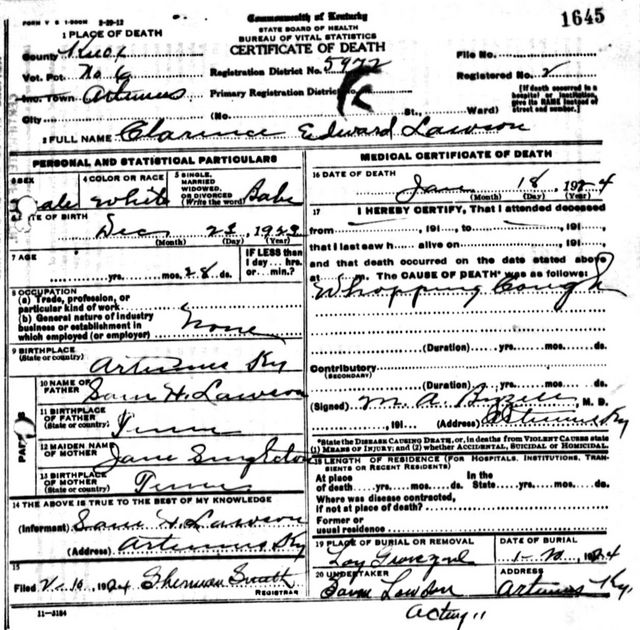 FORM V S 1-500M 8-29-12
Commonwealth of Kentucky
1645
STATE BOARD OF HEALTH
BUREAU OF VITAL STATISTICS
CERTIFICATE OF DEATH
1 PLACE OF DEATH
County Knox
File No.
Vot. Pct. No 6
Registration District No. 5972
Registered No. 2
Inc. Town Artemus
Primary Registration District No.
[If death occurred in a hospital or institution, give its NAME instead of street and number.]
City (No. St., Ward)
2 FULL NAME Clarence Edward Lawson
PERSONAL AND STATISTICAL PARTICULARS
3 SEX Male
4 COLOR OR RACE White
5 SINGLE, MARRIED WIDOWED, OR DIVORCED (Write the word) Babe
6 DATE OF BIRTH
Dec 23, 1923
(Month) (Day) (Year)
7 AGE
yrs. mos. 28 ds.
IF LESS than 1 day... hrs. or min.?
8 OCCUPATION
(a) Trade, profession, or particular kind of work
(b) General nature of industry business or establishment in which employed (or employer) None
9 BIRTHPLACE
(State or country) Artemus Ky
PARENTS
10 NAME OF FATHER Sam H. Lawson
11 BIRTHPLACE OF FATHER (State or country) Tenn
12 MAIDEN NAME OF MOTHER Jane Singleton
13 BIRTHPLACE OF MOTHER (State or country) Tenn
14 THE ABOVE IS TRUE TO THE BEST OF MY KNOWLEDGE
(Informant) Sam H. Lawson
(Address) Artemus Ky
15
Filed 2-10, 1924 Sherman Smith
REGISTRAR
11-3184
MEDICAL CERTIFICATE OF DEATH
16 DATE OF DEATH
Jan 18, 1924
(Month) (Day) (Year)
17 I HEREBY CERTIFY, That I attended deceased
from, 191, to, 191,
that I last saw h alive on, 191,
and that death occurred on the date stated above
at m. The CAUSE OF DEATH* was as follows:
Whopping Cough
(Duration) yrs. mos. ds.
Contributory
(SECONDARY)
(Duration) yrs. mos. ds.
(Signed) M. A. , M. D.
, 191 (Address) Artemus Ky
*State the DISEASE CAUSING DEATH, or, in deaths from VIOLENT CAUSES state
(1) MEANS OF INJURY; and (2) whether ACCIDENTAL, SUICIDAL or HOMICIDAL.
18 LENGTH OF RESIDENCE (FOR HOSPITALS, INSTITUTIONS, TRANSIENTS OR RECENT RESIDENTS)
At place of death yrs. mos. ds. In the State yrs. mos. ds.
Where was disease contracted,
if not at place of death?
Former or
usual residence
19 PLACE OF BURIAL OR REMOVAL
DATE OF BURIAL
1924
20 UNDERTAKER
ADDRESS
Artemus Ky.
Acting